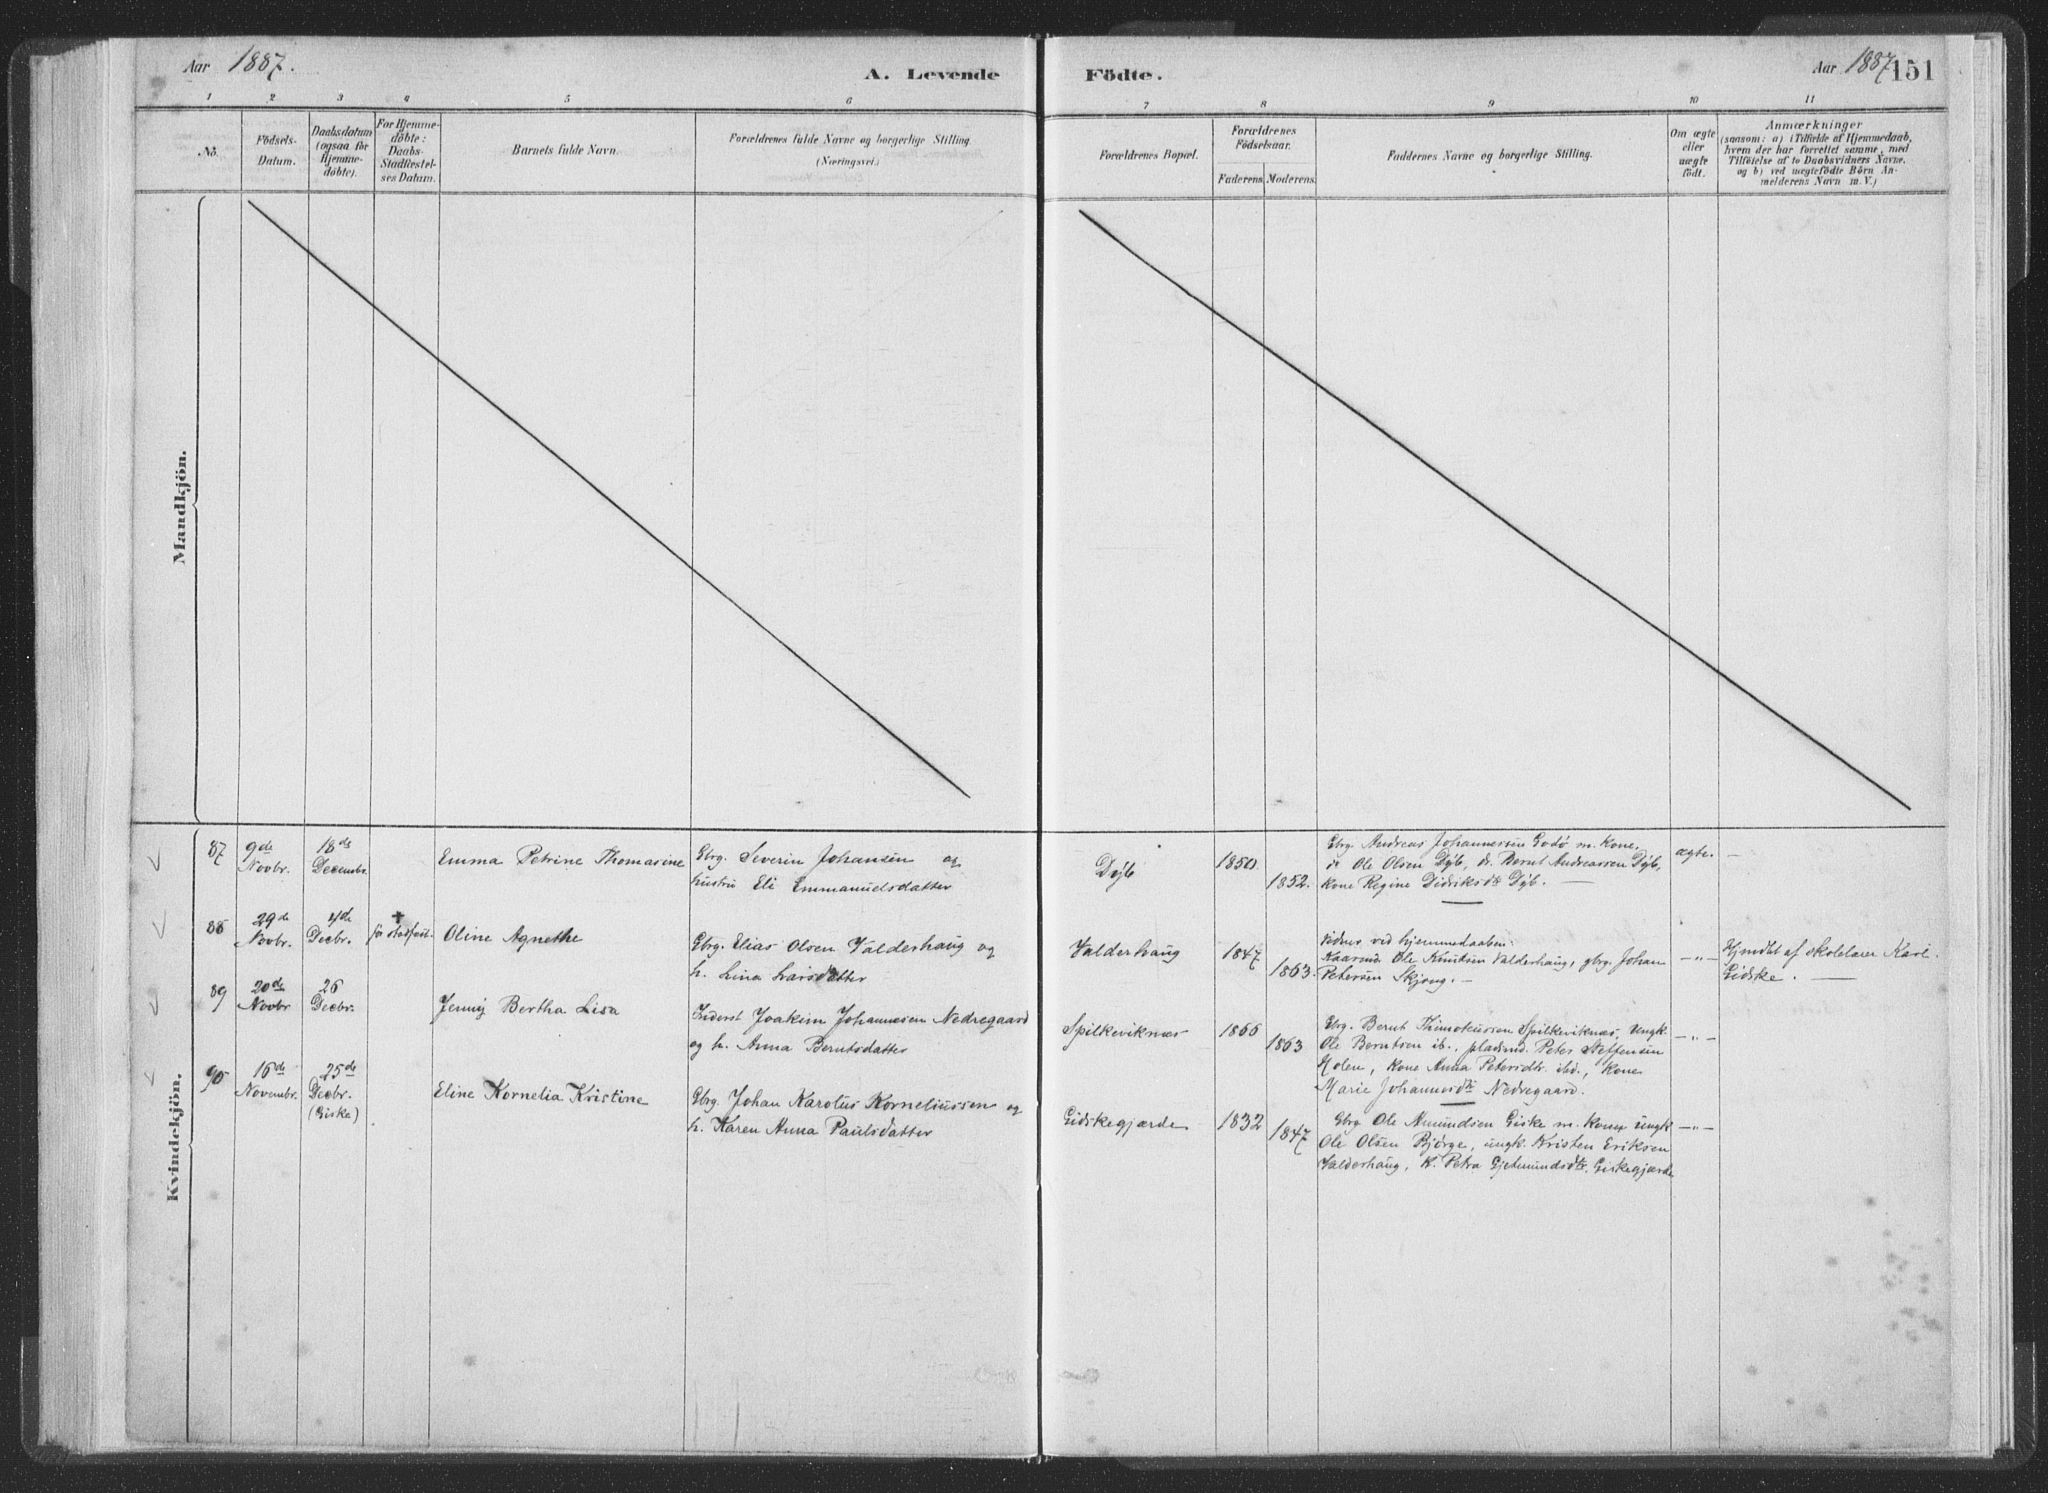 Aar 1887.
A. Levende Födte.
Aar 1887 151
1 2 3 4 5 6 7 8 9 10 11
No.
Födsels-
Datum.
Daabsdatum
(ogsaa for
Hjemme-
döbte).
For Hjemme-
döbte:
Daabs-
Stadfæstel-
ses Datum.
Barnets fulde Navn.
Forældrenes fulde Navne og borgerlige Stilling
(Næringsvei.)
Forældrenes Bopæl.
Forældrenes
Födselsaar.
Faderens. Moderens.
Faddernes Navne og borgerlige Stilling.
Om ægte
eller
uægte
födt.
Anmærkninger
(saasom: a) i Tilfælde af Hjemmedaab,
hvem der har forrettet samme, med
Tilföielse af to Daabsvidners Navne.
og b) ved uægtefödte Börn An-
melderens Navn m.V.)
Mandkjön.
Kvindekjön.
87
9de
Novbr.
18de
Decembr.
Emma Petrine Thomasine
Gbrg. Severin Johansen og
hustru Eli Emmanuelsdatter
Dyb
1850.
1852.
Gbrg. Andreas Johannessen Godø m. Kone,
Ole Olsen Dyb, Bernt Andreassen Dyb,
Kone Regine Didriksdtr Dyb. —
ægte. —
88
29de
Novbr.
4de
Decbr.
+
før stadfæst.
Oline Agnethe
Gbrg. Elias Olsen Valderhaug og
h. Lina Larsdatter
Valderhaug
1847
1863.
Vidner ved hjemmedaaben:
Kaarmd. Ole Knudsen Valderhaug, gbrg. Johan
Petersen Skjong. —
—"—
Hjmdbt af skolelærer Karl
Gidske. —
89
20de
Novbr
26
Decbr.
Jenny Bertha Lisa
Inderst Joakim Johannesen Nedregaard
og h. Anna Berntsdatter
Spilkeviknæs
1866
1863
Gbrg. Bernt Thimoteussen Spilkeviknæs, Ungk.
Ole Berntsen ib., pladsmd. Peter Steffensen
Holen, Kone Anna Petersdtr. ibd., Kone
Marie Johannesdtr Nedregaard.
—"—
90
16de
Novembr.
25de
Decbr.
(Giske)
Eline Kornelia Kristine
Gbrg. Johan Karolus Korneliussen og
h. Karen Anna Paulsdatter
Gidskegjærde
1832
1847
Gbrg Ole Amundsen Giske m. Kone, ungk
Ole Olsen Bjørge, ungk. Kristen Eriksen
Valderhaug, K. Petra Gjetmundsdtr. Giskegjærde
—"—